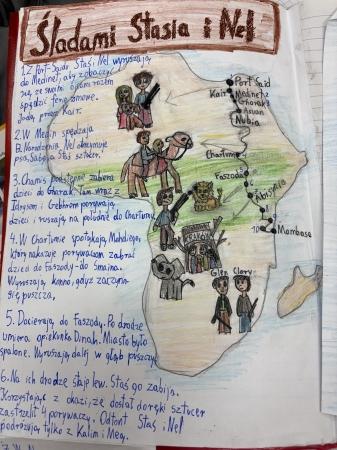 Śladami Stasia i Nel
1. Z Port-Saidu Staś i Nel wyruszają
do Medinet, aby zobaczyć
się ze swoimi ojcami razem
spędzić ferie zimowe.
Jadą przez Kair.
2. W Medin spędzają
B. Narodzenia, Nel otrzymuje
psa Sabę, a Staś sztucer.
3. Chamis podstępnie zabiera
dzieci do Gharak. Tam wraz z
Idrysem i Gebhrem porywają
dzieci i ruszają na południe do Chartumu.
4. W Chartumie spotykają Mahdiego,
który nakazuje porywaczom zabrać
dzieci do Faszody - do Smaina.
Wyruszają konno, gdyż zaczyna
się puszcza.
5. Docierają do Faszody. Po drodze
umiera opiekunka Dinah. Miasto było
spalone. Wyruszają dalej w głąb puszczy.
6. Na ich drodze staje lew. Staś go zabija.
Korzystając z okazji, że dostał do ręki sztucer
zastrzelił 4 porywaczy. Odtąd Staś i Nel
podróżują tylko z Kalim i Meą.
Port Said
Kair
Medinet
Gharak
Asuan
Nubia
Chartum
Faszoda
Abisynia
Mombasa
10
KRAKÓW
Glen Clary